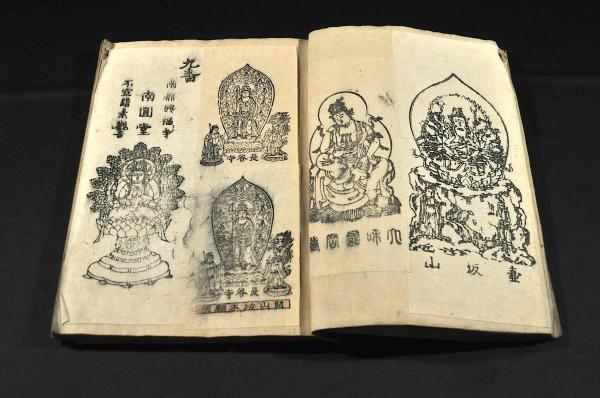 九番
南都興福寺
南圓堂
不空羂索觀音
長谷寺
長谷寺
大和國岡寺
壷坂山